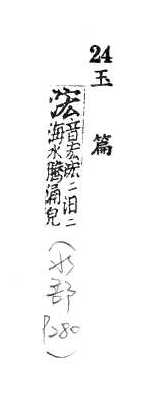 24
玉篇
浤音宏浤二汨二
海水騰涌皃
(水部
P280)